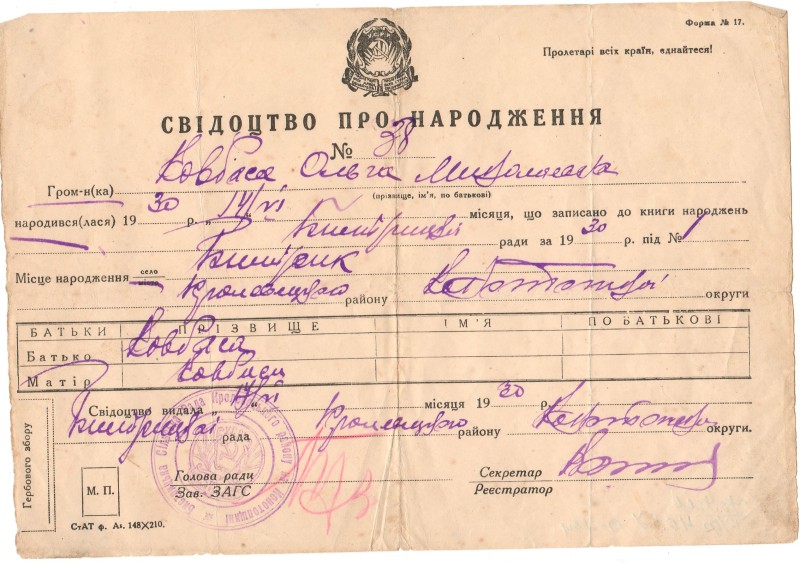 Форма № 17.
Пролетарі всіх країн, єднайтеся!
СВІДОЦТВО ПРО НАРОДЖЕННЯ
№ 38
Гром-н(ка) Ковбаса Ольга Миколаєвна
(прізвище, ім'я, по батькові)
народився(лася) 19 30 р. „ 14/VI місяця, що записано до книги народжень
ради за 19 30 р. під № 1
Місце народження село
Кролевецького району Конотопської округи
БАТЬКИ ПРІЗВИЩЕ ІМ'Я ПО БАТЬКОВІ
Батько Ковбаса
Матір Ковбаса
Свідоцтво видала „ 14/VI місяця 19 30 р.
рада Кролевецького району Конотопської округи.
Гербового збору
М. П.
Голова ради
Зав. ЗАГС
Секретар
Реєстратор
СтАТ ф. А₁. 148×210.